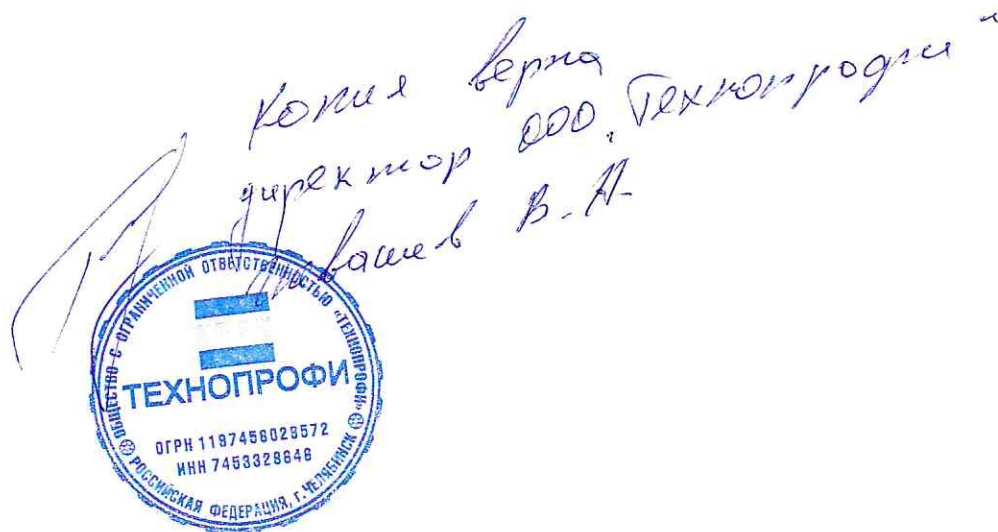 Копия верна
директор ООО „Технопрофи"
В.А.
ОБЩЕСТВО С ОГРАНИЧЕННОЙ ОТВЕТСТВЕННОСТЬЮ «ТЕХНОПРОФИ»
ТЕХНОПРОФИ
ОГРН 1197456028572
ИНН 7453328646
РОССИЙСКАЯ ФЕДЕРАЦИЯ, Г. ЧЕЛЯБИНСК